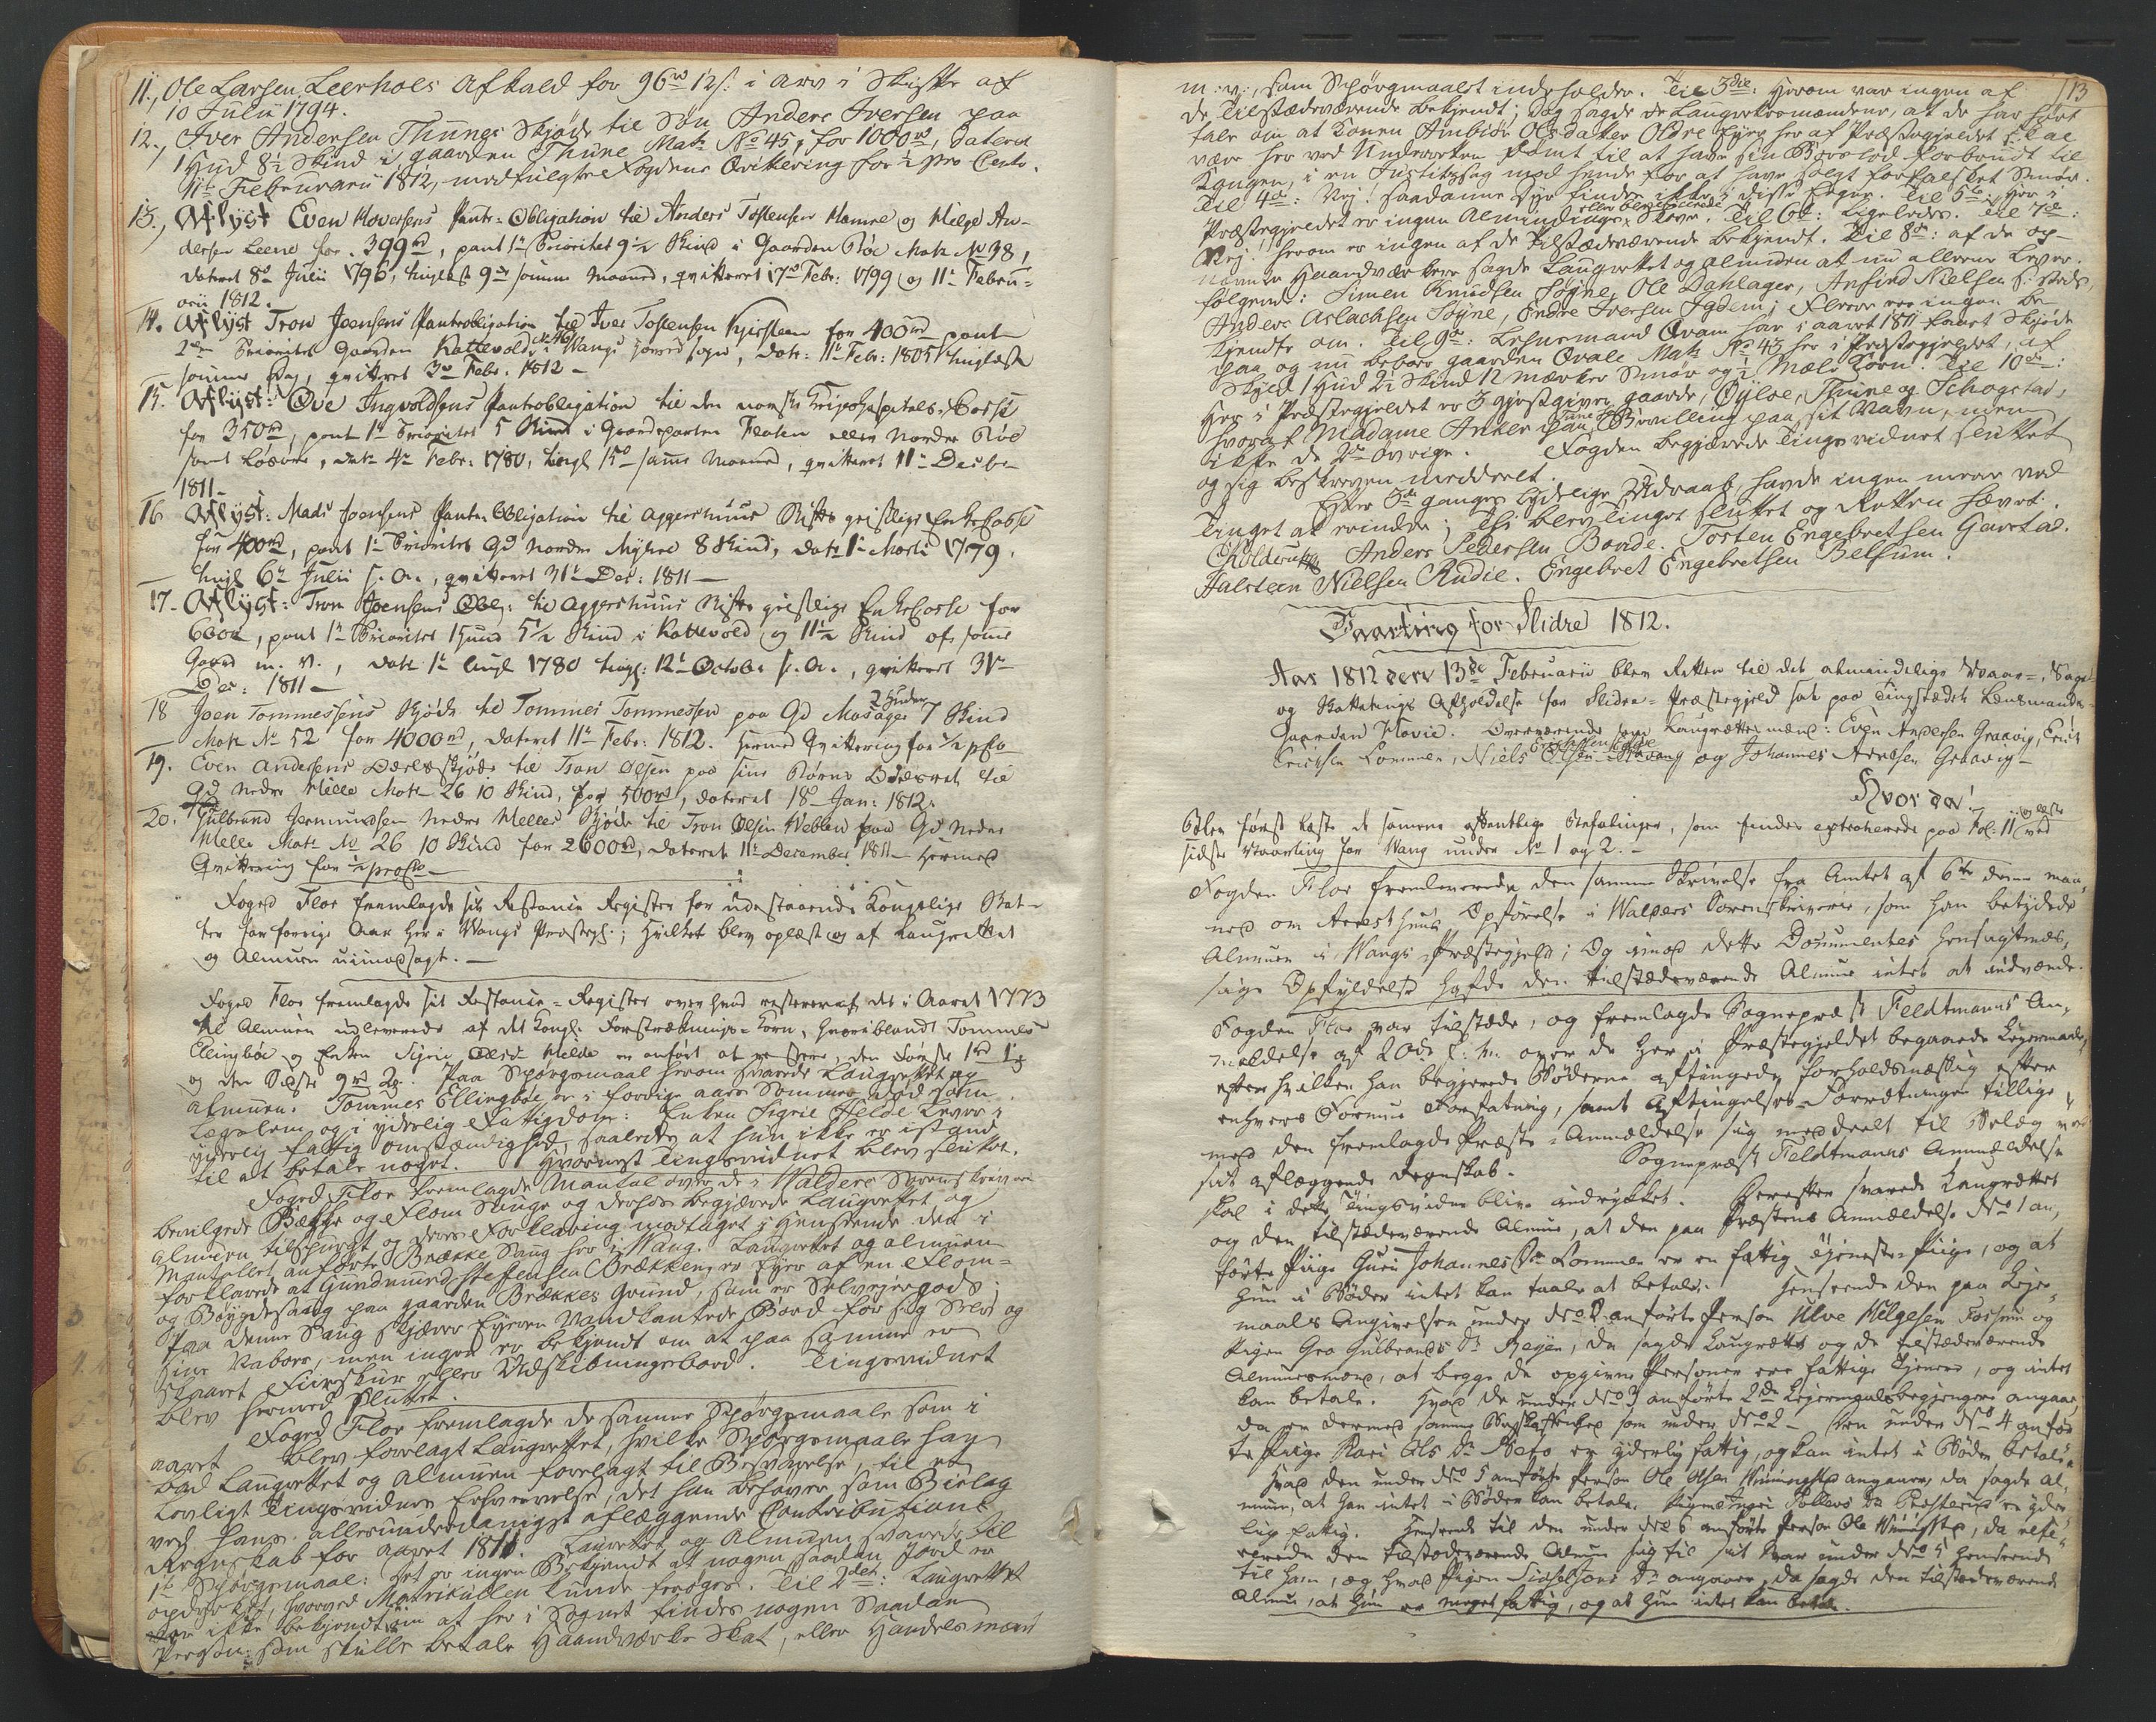 11., Ole Larsen Leerhols Afkald for 96rd 12s: i arv i Skifte af
10 Julii 1794.
12., Iver Andersen Thunes Skjøde til Søn Anders Iversen paa
1 Hud 8½ Skind i gaarden Thune Matr: No 45, for 1000rd, dateret
11te Februarii 1812, medfulgte Fogdens Qvittering for ½ pro Cento.
13., Aflyst Even Hoversens Pante-Obligation til Anders Tostensen Hamre og Helge An-
dersen Leene for 399rd, pant 1te Prioritet 9½ Skind i Gaarden Røe Matr No 38,
dateret 8de Julii 1796, tinglæst 9de samme Maaned, qvitteret 17de Febr: 1799 og 11te Febru-
arii 1812.
14. Aflyst Tron Joensens Pantobligation til Iver Tostensen Kjørsteen for 400rd pant
2den Prioritet Gaarden Kattevold i Wangs hoved sogn, dat: 11te Febr: 1805 tinglæst
samme Dag, qvitteret 3de Febr. 1812 -
15. Aflyst: Ove Ingvoldsens Pantobligation til den norske Krigshospitals-Casse
for 350rd, pant 1te Prioritet 5 Skind i Gaardeparten Floten eller Nordre Røe
samt Løsøre, dat: 4de Febr: 1780, tingl 15de samme Maaned, qvitteret 11te Decbr
1811 -
16 Aflyst: Mads Joensens Pante-Obligation til Aggershuus Stifts geistlige EnkeCasse
for 400rd, pant 1te Prioritet Gd Nordre Myhre 8 Skind, dat: 1te Martii 1779.
tingl 6te Julii s. A., qvitteret 31te Dec: 1811 -
17 - Aflyst: Tron Joensens Obl: til Aggershuus Stifts geistlige EnkeCasse for
600rd, pant 1te Prioritet 1 Hud 5½ Skind i Kattevold og 11½ Skind af samme
Gaard m. v., dat: 1te 1780 tingl: 12te October s. A., qvitteret 31te
Dec: 1811 -
18 Joen Tommessens Skjøde til Tommes Tommessen paa Gd Mosager 2 Huder 7 Skind
Matr No 52 for 4000rd, dateret 11te Febr: 1812. hermed Qvittering for ½ pCto
19. Even Andersens Odelsskjøde til Tron Olsen paa sine Børns Odelsret til
Gd Nedre Helle Matr 26 10 Skind, for 500rd, dateret 18de Jan: 1812.
20. Gulbrand Joenmundsen Nedre Helles Skjøde til Tron Olsen Weblen paa Gd Nedre
Helle Matr No 26 10 Skind for 2600rd, dateret 11te December 1811 - hermed
Qvittering for ½ proCto -
Foged Floe fremlagde sit Restance Register for udestaaende Kongelige Skat-
ter for forrige Aar her i Wangs Præstegj:; hvilket blev oplæst og af Laugrettet
og Almuen uimodsagt. -
Foged Floe fremlagde sit Restance-Register over hvad resterer af det i Aaret 1773
til Almuen udleverede af det Kongl: Forstræknings-Korn, hvoriblandt Tommes
Ellingbøe og Enken Sigrie Olsdr Helde er anført at restere, den første 1rd
og den sidste 9rd 2. Paa Spørgsmaal herom svarede Laugrettet og
almuen. Tommes Ellingbøe er i forrige aars Sommer død som
Legslem og i yderlig Fattigdom: Enken Sigrie Helde lever i
yderlig fattig omstændighed, saaledes at hun ikke er istand
til at betale noget. Hvornest Tingsvidnet blev sluttet.
Foged Floe fremlagde Mantal over de i Walders Sorenskriverie
bevilgede Bække og Flom Sauge og derhos begjærede Laugrettet og
almuen tilspurgt og deres Forklaring modtaget i Henseende den i
Mantallet anførte Brække Saug her i Wang. Laugrettet og almuen
forklarede at Gundmund Steffensen Brækken er Eyer af en Flom-
og Bøygdesaug paa gaarden Brækkes Grund, som er Selveyergods.
Paa denne Saug skjærer Eyeren Vandkantede Bord for sig Selv og
sine Naboer, men ingen er bekjendt om at paa samme er
skaaret Fiirskur eller Udskibningsbord. Tingsvidnet
blev hermed Sluttet.
Foged Floe fremlagde de samme Spørgsmaale som i
aaret blev forelagt Laugrettet, hvilke Spørgsmaale han
bad Laugrettet og almuen forelagt til Besvarelse, til et
Lovligt Tingsvidnes Erhvervelse, det han behøver som Bielag
ved hans allerunderdanigst aflæggende Contributions
Regnskab for aaret 1811. Laugrettet og Almuen svarede Til
1te Spørgsmaal: det er ingen Bekjendt at nogen saadan Jord er
opdyrket, hvorved Matrikullen kunde forøges. Til 2det: Laugrettet
var ikke bekjendt om at her i Sognet findes nogen Saadan
Person: som skulle betale Haandværks Skat, eller Handelsmænd
13
m: v:, som Spørgsmaalet indeholder. Til 3die: herom var ingen af
de Tilstædeværende bekjendt; dog sagde de Laugrettesmændene, at de har hørt
tale om at Konen Ambiør Olsdatter Oldre Eyer her af Præstegjeldet skal
være her ved Underretten dømt til at have sin Boeslod forbrudt til
Kongen, i en Justitssag mod hende for at have solgt forfalsket Smør.
Til 4de: Nej! saadanne Eyer findes ikke i disse Egne. Til 5te: Her i
Præstegjeldet er ingen Almindings eller beneficerede Skove. Til 6te: Ligeledes. Til 7de:
Nej. herom er ingen af de tilstædeværende bekjendt. Til 8de: af de op-
nævnte Haandværkere sagde Laugrettet og almuen at nu allene Lever
følgende: Simen Knudsen Søyne, Ole Dahlager, Anfind Nielsen s: steds,
Anders Aslachsen Søyne, Endre Iversen Igdem; Fleere var ingen be-
kjendte om. Til 9de: Lensmand Qvam har i aaret 1811 faaet Skjøde
paa og nu beboer gaarden Qvale Matr No 43 her i Præstegjeldet, af
Skyld 1 Hud 2½ Skind 12 mærker Smør og ½ Mæle Korn. Til 10de:
Her i Præstegjeldet er 3 gjestgiver gaarde, Øyloe, Thune og Schogstad,
hvoraf Madame Anker paa Tune har Bevilling paa sit Navn, men
ikke de 2de øvrige. Fogden begjærede Tingsvidnet sluttet
og sig beskreven meddeelt.
Efter 3de ganges lydelige Udraab, havde ingen meere ved
Tinget at erindre; Thi blev Tinget sluttet og Retten hævet.
Anders Pedersen Bonde. Tosten Engebretsen Gavstad.
Halsteen Nielsen Rudie. Engebret Engebretsen Belsum.
Vaarting for Slidre 1812.
Aar 1812 den 13de Februarii blev Retten til det almindelige Vaar-, Sage-
og Skattetings Afholdelse for Slidre-Præstegjeld sat paa Tingstædet Lensmands-
Gaarden Hovie. Overværende som Laugrettesmænd: Even Andersen Graavig, Erich
Erichsen Lommen, Niels Olsen og Johannes Arnesen Graavig -
Hvor da!
Blev først læste de samme offentlige Befalinger, som findes extraherede paa Fol: 11 og læste ved
sidste Vaarting for Wang under No 1 og 2. -
Fogden Floe fremleverede den samme Skrivelse fra Amtet af 6te denne maa-
ned om Arresthuus Opførelse i Walders Sorenskriverie, som han betydede
Almuen i Wangs Præstegjeld; Og imod dette Documentes hensigtmæs-
sige Opfyldelse hafde den tilstædeværende Almue intet at indvende.
Fogden Floe var tilstæde, og fremlagde Sognepræst Feldtmanns An-
meldelse af 20de f. m. over de her i Præstegjeldet begaaede Leiermaale,
efter hvilken han begjærede Bøderne aftingede forholdsmæssig efter
enhvers Formue Forfatning, samt Aftingelses-Forretningen tillige
med den fremlagde Præste-Anmældelse sig meddeelt til Belæg ved
sit aflæggende Regnskab. Sognepræst Feldtmanns Anmældelse
skal i dette Tingsvidne blive indrykket. Derefter svarede Laugrettet
og den tilstædeværende Almue, at den paa Præstens Anmældelse No 1 an-
førte Pige Guri Johannes Dr Lommen er en fattig Tjeneste Pige, og at
hun i Bøder intet kan taale at betale. Henseende den paa Leier-
maals Angivelsen under No 2 anførte Person Ulve Helgesen Fosheim og
Pigen Gro Gulbrands Dr Reyen, da sagde Laugrettet og de tilstædeværende
Almuesmænd, at begge de opgivne Personer ere fattige Tjenere, og intet
kan betale. Hvad de under No 3 anførte 2de Leiermaalsbegjengere angaaer,
da er dermed samme Beskaffenhed som under No 2 - Den under No 4 anfør-
te Pige Kari Ols Dr er yderlig fattig, og kan intet i Bøder betale.
Hvad den under No 5 anførte Person Ole Olsen angaaer, da sagde Al-
muen, at han intet i Bøder kan betale. er yder-
lig fattig. Henseende til den under No 6 anførte Person Ole, da refe-
rerede den tilstædeværende Almue sig til sit Svar under No 5 henseende
til ham, og hvad Pigen angaaer, da sagde den tilstædeværende
Almue, at hun er meget fattig, og at hun intet kan betale.